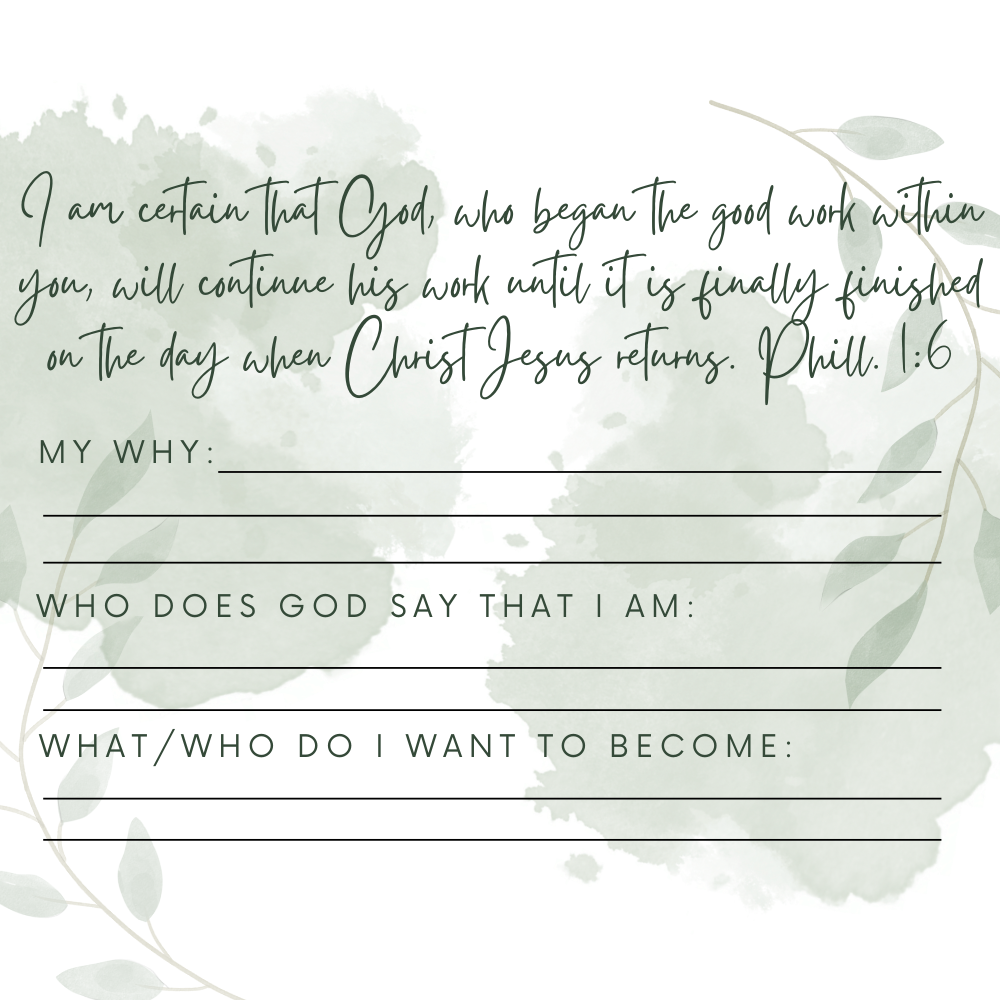 I am certain that God, who began the good work within
you, will continue his work until it is finally finished
on the day when Christ Jesus returns. Phill. 1:6
MY WHY:
WHO DOES GOD SAY THAT I AM:
WHAT/WHO DO I WANT TO BECOME: